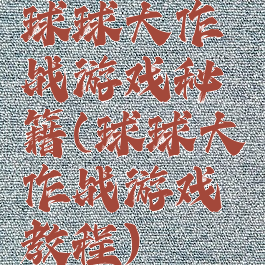 球球大作
战游戏秘
籍(球球大
作战游戏
教程)